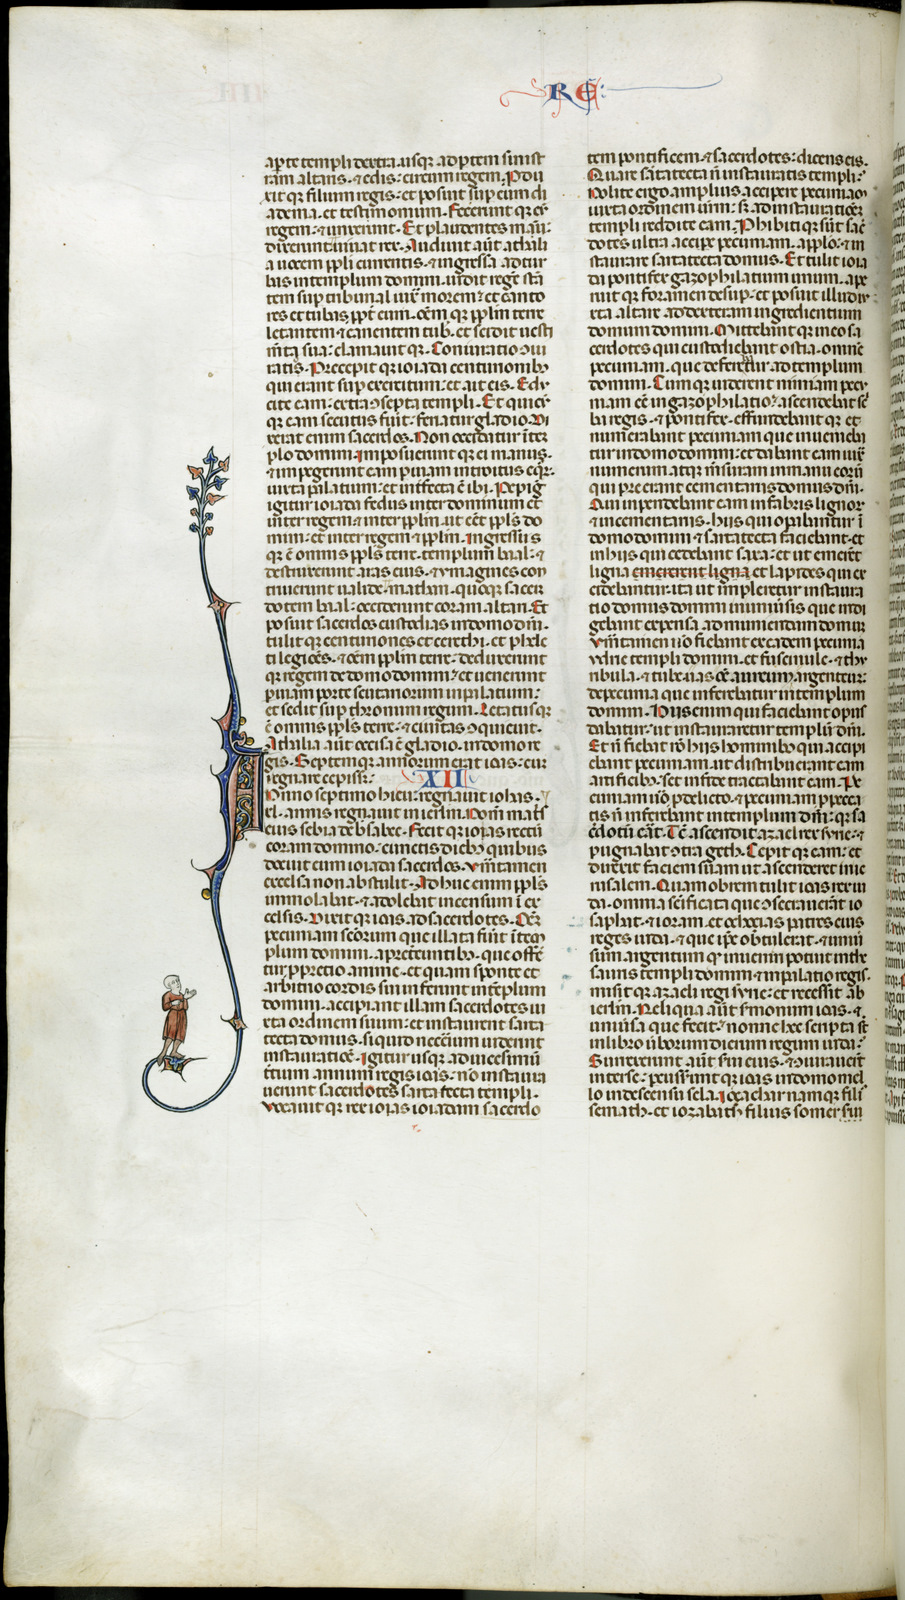 RE:
a parte templi dextra usque ad partem sinist
ram altaris · & edis : circum regem · Produ
xit que filium regis : et posuit super eum di
adema · et testimonium · Fecerunt que eum
regem : & unxerunt · Et plaudentes manu :
dixerunt : vivat rex · Audivit aut athali
a vocem populi currentis · & ingressa ad tur
bas in templum domini · vidit rege stan
tem sup tribunal iuxta morem : et canto
res et tubas
letantem & canentem tubis · et scidit vesti
menta sua : clamavit que · Coniuratio
ratio · Precepit que ioiada centurionibus
qui erant sup exercitum : et ait eis · Edu
cite eam : extra septa templi · Et quicu
que eam secutus fuit : feriatur gladio · Di
xerat enim sacerdos · Non occidatur in tem
plo domini · Imposuerunt que ei manus ·
& impegerunt eam per viam introitus equor
iuxta palatium : et interfecta e ibi · Pepigit
igitur ioiada fedus inter dominum et
inter regem & inter populum · ut eet populus do
mini : et inter regem & populum · Ingressus
que e omnis populus terre · templum baal : &
destruxerunt aras eius · & ymagines con
triverunt valide · mathan · quoque sacer
dotem baal : occiderunt coram altari · Et
posuit sacerdos custodias in domo domini ·
tulit que centuriones et cerethi · et phele
ti legiones · & omnem populum terre : deduxerunt
que regem de domo domini : et venerunt
per viam porte scutariorum in palatium :
et sedit sup thronum regum · Letatusque
e omnis populus terre : & civitas conquievit ·
Athalia aut occisa e gladio · in domo re
gis · Septemque annorum erat ioas : cum
regnare cepisset :
XII
Anno septimo hieu : regnavit iohas ·
el · annis regnavit in ierusalem · Nomen matris
eius sebia de bersabee · Fecit que ioas rectum
coram domino : cunctis diebus quibus
docuit eum ioiada sacerdos · Verumtamen
excelsa non abstulit · Adhuc enim populus
immolabat · & adolebat incensum in ex
celsis · Dixit que ioas · ad sacerdotes · Omnem
pecuniam sanctorum que illata fuerit in tem
plum domini · a pretereuntibus · que offer
tur pro precio anime · et quam sponte et
arbitrio cordis sui inferunt in templum
domini · accipiant illam sacerdotes iu
xta ordinem suum : et instaurent sarta
tecta domus · si quid necessarium viderint
instauratione · Igitur usque ad vicesimum
tertium annum regis ioas : non instaura
verunt sacerdotes sarta tecta templi ·
Vocavit que rex ioas ioiadam sacerdo
tem pontificem · & sacerdotes : dicens eis ·
Quare sarta tecta non instauratis templi :
Nolite ergo amplius accipere pecuniam
iuxta ordinem vestrum : sed ad instaurationem
templi reddite eam · Prohibiti que sunt sacer
dotes ultra accipere pecuniam a populo : & in
staurare sarta tecta domus · Et tulit ioia
da pontifex gazophilatium unum · ape
ruit que foramen desuper · et posuit illud iu
xta altare ad dexteram ingredientium
domum domini · Mittebant que in eo sa
cerdotes qui custodiebant ostia · omnem
pecuniam · que deferebatur ad templum
domini · Cum que viderent nimiam pecu
niam ee in gazophilatio : ascendebat scri
ba regis · & pontifex · effundebant que et
numerabant pecuniam que inveniebat
tur in domo domini : et dabant eam iuxta
numerum atque mensuram in manu eorum
qui preerant cementariis domus domini ·
Qui impendebant eam in fabris lignor
& in cementariis · hiis qui operabantur in
domo domini : & sarta tecta faciebant · et
in hiis qui cedebant saxa : et ut emerent
ligna emerent ligna et lapides qui ex
cidebantur : ita ut impleretur instaura
tio domus domini in universis que indi
gebant expensa · ad muniendam domum
Verumtamen non fiebant ex eadem pecunia
ydrie templi domini · et fuscinule · & thu
ribula · & tube · vas omne aureum · argenteum :
de pecunia que inferebatur in templum
domini · Hiis enim qui faciebant opus
dabatur : ut instauraretur templum domini ·
Et non fiebat ratio hiis hominibus qui accipi
ebant pecuniam · ut distribuerent eam
artificibus : set in fide tractabant eam · Pe
cuniam vero pro delicto · & pecuniam pro pecca
tis non inferebant in templum domini : quia sa
cerdotum erat · Tunc ascendit azael rex syrie · &
pugnabat contra geth · Cepit que eam : et
direxit faciem suam ut ascenderet in ie
rusalem · Quam obrem tulit ioas rex iu
da · omnia sanctificata que consecraverant io
saphat · & ioram · et ochozias patres eius
reges iuda · & que ipse obtulerat · & univer
sum argentum quod inveniri potuit in the
sauris templi domini · & in palatio regis ·
misit que azaeli regi syrie · et recessit ab
ierusalem · Reliqua aut sermonum ioas · &
universa que fecit : nonne hec scripta sunt
in libro verborum dierum regum iuda :
Surrexerunt aut servi eius · & coniuraverunt
inter se : percusserunt que ioas in domo mel
lo in descensu sela · Iozachar nam que fili
semath · et iozabath · filius somer servi